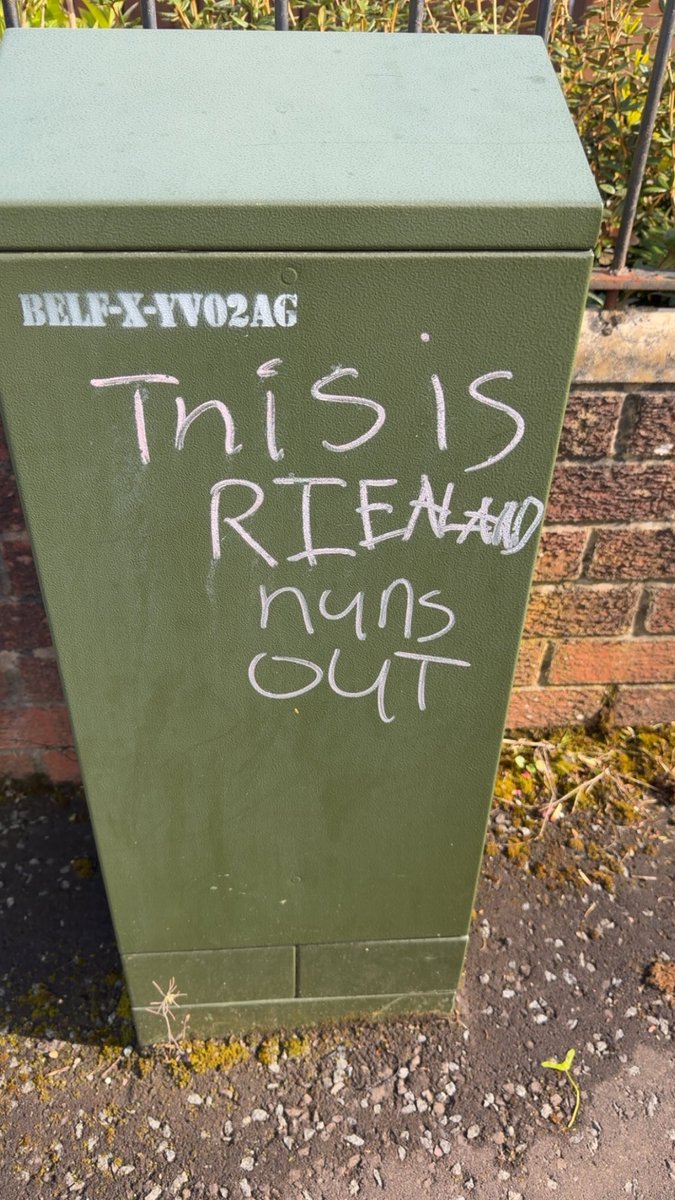 BELF-X-YV02AG
This is
RIEALAND
nuns
OUT